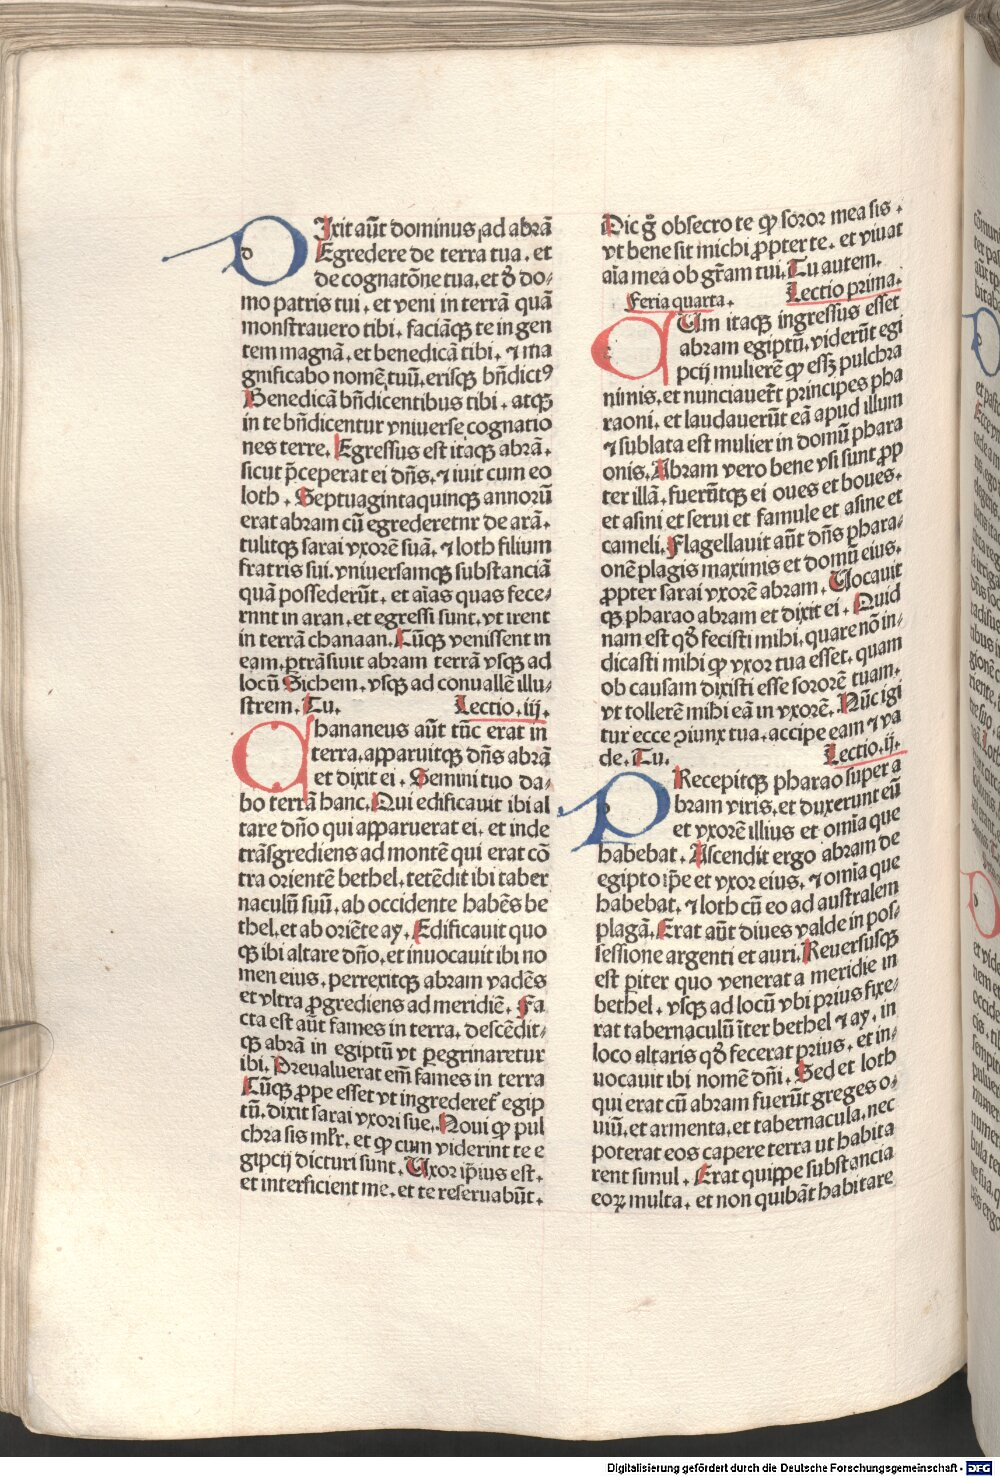 DIxit aūt dominus ad abrā
Egredere de terra tua. et
de cognatōne tua. et ō do-
mo patris tui. et veni in terrā quā
monstrauero tibi. faciāqꝫ te in gen
tem magnā. et benedicā tibi. ⁊ ma
gnificabo nomē tuū. erisqꝫ bn̄dictꝰ
Benedicā bn̄dicentibus tibi. atqꝫ
in te bn̄dicentur vniuerse cognatio
nes terre. Egressus est itaqꝫ abrā.
sicut p̄ceperat ei dn̄s. ⁊ iuit cum eo
loth. Septuagintaquinqꝫ annorū
erat abram cū egrederetnr de arā.
tulitqꝫ sarai vxorē suā. ⁊ loth filium
fratris sui. vniuersamqꝫ substanciā
quā possederūt. et aīas quas fece-
rnnt in aran. et egressi sunt. vt irent
in terrā chanaan. Cūqꝫ venissent in
eam. ꝑtrāsiuit abram terrā vsqꝫ ad
locū Sichem. vsqꝫ ad conuallē illu-
strem. Tu. Lectio. iij.
Chananeus aūt tūc erat in
terra. apparuitqꝫ dn̄s abrā
et dixit ei. Semini tuo da-
bo terrā hanc. Qui edificauit ibi al
tare dn̄o qui apparuerat ei. et inde
trāsgrediens ad montē qui erat cō
tra orientē bethel. tetēdit ibi taber
naculū suū. ab occidente habēs be
thel. et ab oriēte ay. Edificauit quo
qꝫ ibi altare dn̄o. et inuocauit ibi no
men eius. perrexitqꝫ abram vadēs
et vltra ꝓgrediens ad meridiē. Fa
cta est aūt fames in terra. descēdit-
qꝫ abrā in egiptū vt ꝑegrinaretur
ibi. Preualuerat em̄ fames in terra
Cūqꝫ ꝓpe esset vt ingrederet᷑ egip
tū. dixit sarai vxori sue. Noui ꝙ pul
chra sis ml̄r. et ꝙ cum viderint te e
gipcij dicturi sunt. Uxor ip̄ius est.
et interficient me. et te reseruabūt.
Dic g̊ obsecro te ꝙ soror mea sis.
vt bene sit michi ꝓpter te. et viuat
aīa mea ob gr̄am tui. Tu autem.
Feria quarta. Lectio prima.
CUm itaqꝫ ingressus esset
abram egiptū. viderūt egi
pcij mulierē ꝙ essꝫ pulchra
nimis. et nunciauer̄t principes pha
raoni. et laudauerūt eā apud illum
⁊ sublata est mulier in domū phara
onis. Abram vero bene vsi sunt ꝓp
ter illā. fuerūtqꝫ ei oues et boues.
et asini et serui et famule et asine et
cameli. Flagellauit aūt dn̄s phara-
onē plagis maximis et domū eius.
ꝓpter sarai vxorē abram. Uocauit
qꝫ pharao abram et dixit ei. Quid
nam est qō fecisti mihi. quare nō in-
dicasti mihi ꝙ vxor tua esset. quam
ob causam dixisti esse sororē tuam.
vt tollerē mihi eā in vxorē. Nūc igi
tur ecce ꝯiunx tua. accipe eam ⁊ va
de. Tu. Lectio. ij.
PRecepitqꝫ pharao super a
bram viris. et duxerunt eū
et vxorē illius et omīa que
habebat. Ascendit ergo abram de
egipto ip̄e et vxor eius. ⁊ omīa que
habebat. ⁊ loth cū eo ad australem
plagā. Erat aūt diues valde in pos-
sessione argenti et auri. Reuersusqꝫ
est ꝑiter quo venerat a meridie in
bethel. vsqꝫ ad locū vbi prius fixe-
rat tabernaculū īter bethel ⁊ ay. in
loco altaris qō fecerat prius. et in-
uocauit ibi nomē dn̄i. Sed et loth
qui erat cū abram fuerūt greges o-
uiū. et armenta. et tabernacula. nec
poterat eos capere terra ut habita
rent simul. Erat quippe substancia
eoꝝ multa. et non quibāt habitare
Digitalisierung gefördert durch die Deutsche Forschungsgemeinschaft - DFG